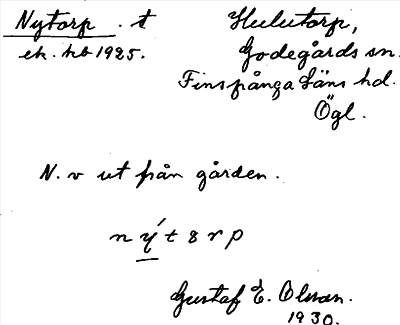 Nytorp . t
ek. hb 1925.
Hulutorp,
Godegårds sn.
Finspånga läns hd.
Ögl.
N. v ut från gården.
n ý t 8 r p
Gustaf E. Olsson.
1930.